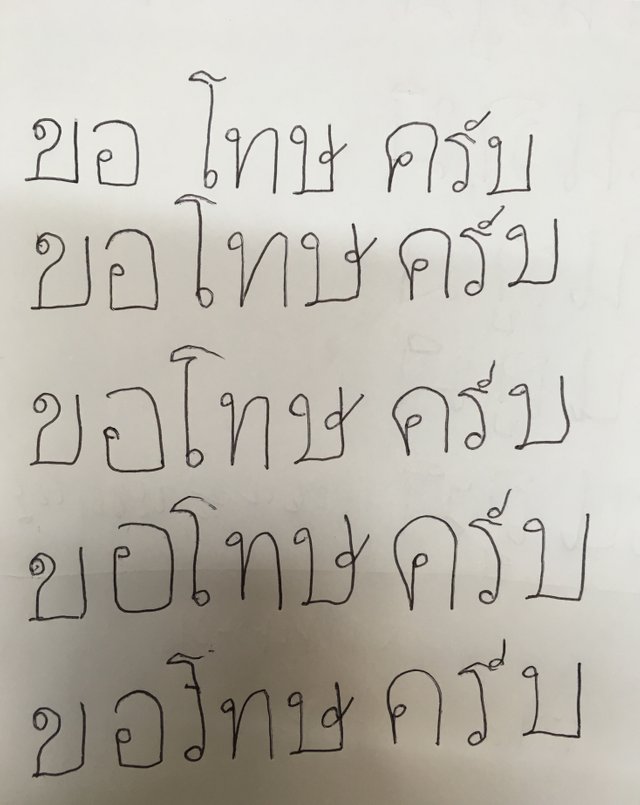 ขอ โทษ ครับ
ขอโทษ ครับ
ขอโทษ ครับ
ขอโทษ ครับ
ขอโทษ ครับ